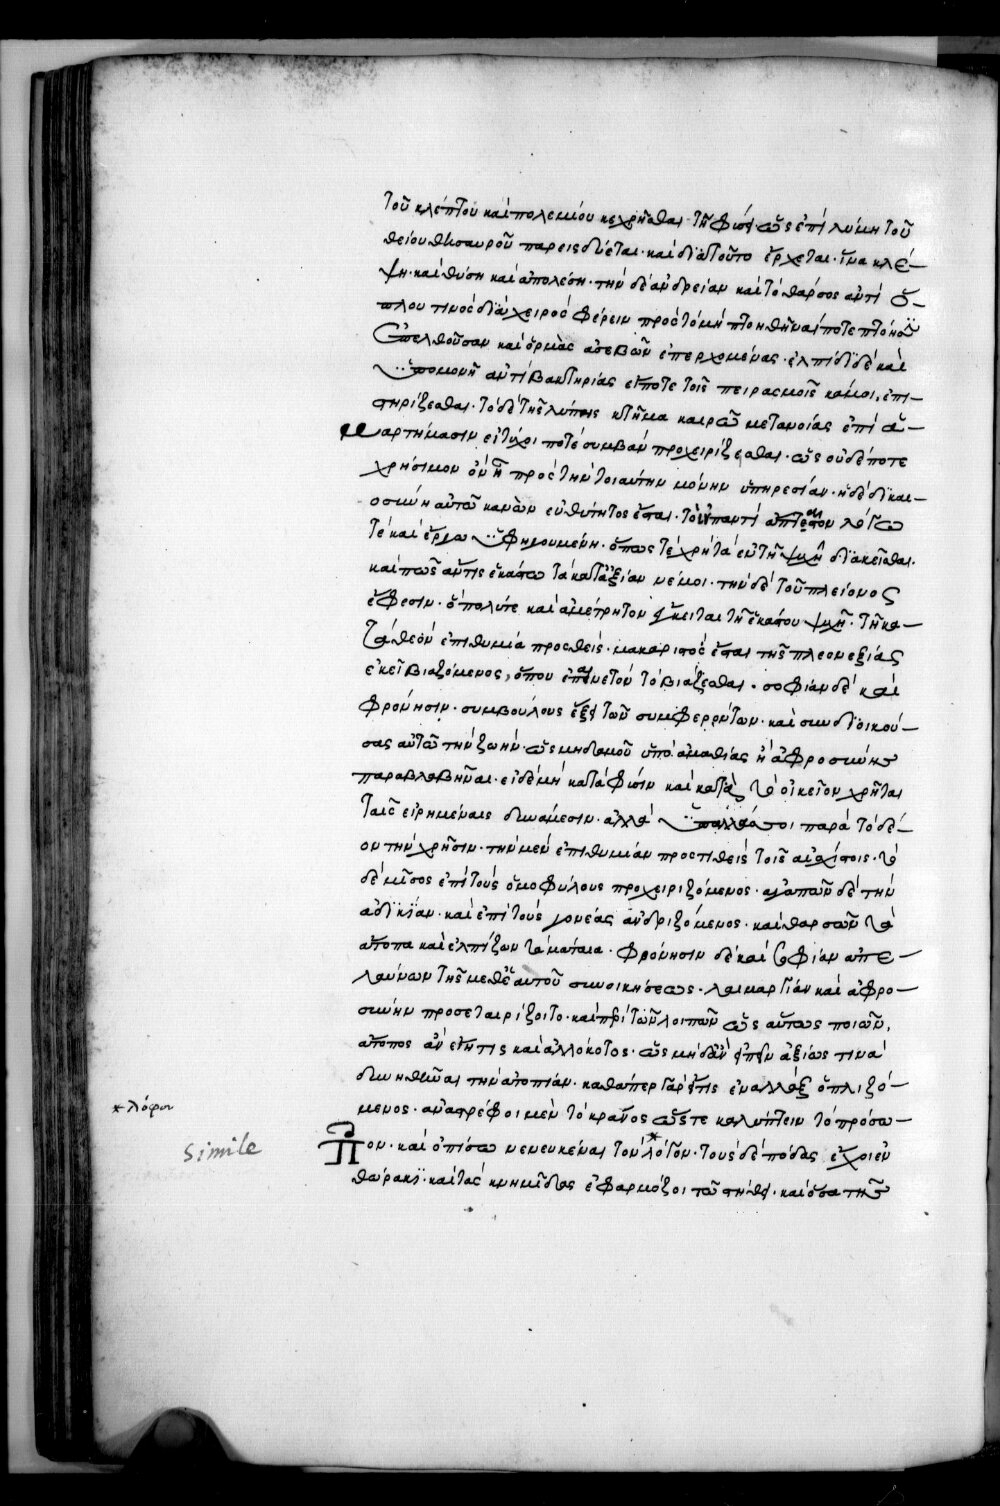 τοῦ κλέπτου καὶ πολεμίου κεχρῆσθαι τῇ φύσει· ὡς ἐπὶ λύμῃ τοῦ
θείου θησαυροῦ παρεισδύεται· καὶ διὰ τοῦτο ἔρχεται· ἵνα κλέ-
ψη· καὶ θύση καὶ ἀπολέση· τὴν δὲ ἀνδρείαν καὶ τὸ θάρσος ἀντὶ ὅ-
πλου τινὸς διὰ χειρὸς φέρειν πρὸς τὸ μὴ πτοηθῆναί ποτε πτόησιν
ἐπελθοῦσαν καὶ ὁρμὰς ἀσεβῶν ἐπερχομένας· ἐλπίδι δὲ καὶ
ὑπομονῇ ἀντὶ βακτηρίας εἴποτε τοῖς πειρασμοῖς κάμοι, ἐπι-
στηρίζεσθαι· τὸ δὲ τῆς λύπης κτῆμα καιρῷ μετανοίας ἐπὶ ἁ-
μαρτήμασιν εἰ τύχοι ποτὲ συμβὰν προχειρίζεσθαι· ὡς οὐδέποτε
χρήσιμον ὂν ἢ πρὸς τὴν τοιαύτην μόνην ὑπηρεσίαν· ἡ δὲ δικαι-
οσύνη αὐτῶ κανὼν εὐθύτητος ἔσται· τὸ ἐν παντὶ ἄπτεστον λόγω
τὲ καὶ ἔργω ὑφηγουμένη· ὅπως τὲ χρὴ τὰ ἐν τῇ ψυχῇ διακεῖσθαι·
καὶ πῶς ἄν τις ἑκάστω τὰ κατ' ἀξίαν νέμοι· τὴν δὲ τοῦ πλείονος
ἔφεσιν· ὃ πολύτε καὶ ἀμέτρητον ἔγκειται τῇ ἑκάστου ψυχῇ· τῇ κα-
τὰ θεὸν ἐπιθυμία προσθεὶς· μακαριστὸς ἔσται τῆς πλεονεξίας
ἐκεῖ βιαζόμενος, ὅπου ἐπαινετὸν τὸ βιάζεσθαι· σοφίαν δὲ καὶ
φρόνησιν· συμβούλους ἕξει τῶν συμφερόντων· καὶ συνδιοικού-
σας αὐτῶ τὴν ζωὴν· ὡς μηδαμοῦ ὑπὸ ἀμαθίας ἢ ἀφροσύνης
παραβλαβῆναι· εἰ δὲ μὴ κατὰ φύσιν καὶ κατὰ τὸ οἰκεῖον χρῆται
ταῖς εἰρημέναις δυνάμεσιν· ἀλλὰ ὑπαλλάσσοι παρὰ τὸ δέ-
ον τὴν χρῆσιν· τὴν μὲν ἐπιθυμίαν προστιθεὶς τοῖς αἰσχίστοις· τὸ
δὲ μῖσος ἐπὶ τοὺς ὁμοφύλους προχειριζόμενος· ἀγαπῶν δὲ τὴν
ἀδικίαν· καὶ ἐπὶ τοὺς γονέας ἀνδριζόμενος· καὶ θαρσῶν τὰ
ἄτοπα καὶ ἐλπίζων τὰ μάταια· φρόνησιν δὲ καὶ σοφίαν ἀπε-
λαύνων τῆς μεθ' ἑαυτοῦ συνοικήσεως· λαιμαργίαν καὶ ἀφρο-
σύνην προσεταιρίζοιτο· καὶ περὶ τῶν λοιπῶν ὡς αὔτως ποιῶν,
ἄτοπος ἂν εἴη τις καὶ ἀλλόκοτος· ὡς μηδ' ἂν εἰπεῖν ἀξίως τινὰ
δυνηθῆναι τὴν ἀτοπίαν· καθάπερ γὰρ εἴ τις ἐναλλὰξ ὁπλιζό-
μενος· ἀναστρέφοι μὲν τὸ κράνος ὥστε καλύπτειν τὸ πρόσω-
πον· καὶ ὀπίσω νενευκέναι τὸν λόγον· τοὺς δὲ πόδας ἔχοι ἐν
θώρακι· καὶ τὰς κνημῖδας ἐφαρμόζοι τῶ στήθει· καὶ ὅσα τῆς
* λόφον
Simile